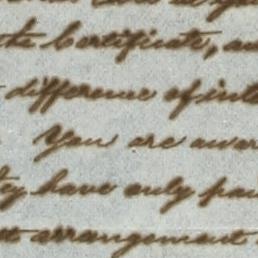 the Certificate, an
difference of inte
You are awar
they have only pai
arrangement